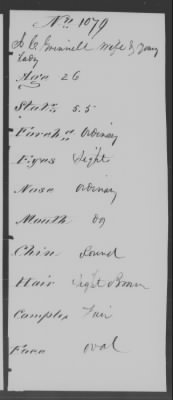 No 1079
A. C. Grinnell Wife & Young
Lady
Age 26
Stat. 5.5
Foreh'd Ordinary
Eyes Light
Nose Ordinary
Mouth Do
Chin Round
Hair Light Brown
Complex Fair
Face Oval